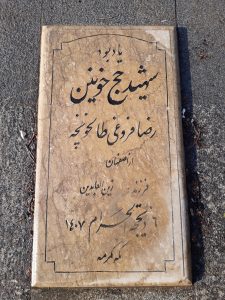 یادبود
شهید حج خونین
رضا فروغی طالخونچه
از اصفهان
فرزند زین العابدین
ذیحجة الحرام ۱۴۰۷
مکه مکرمه